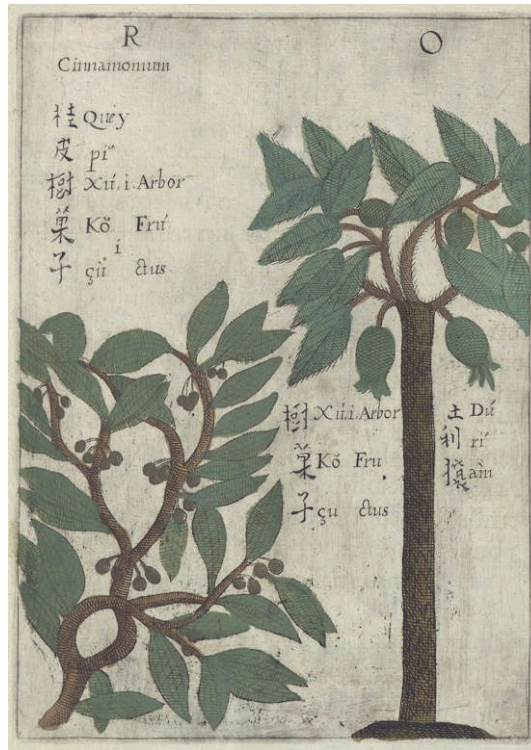 R
Cinnamomum
桂 Quey
皮 pi
樹 Xú, i. Arbor
菓 Kŏ Frú
i
子 çù ctus
O
樹 Xú.i.Arbor
菓 Kŏ Fru
子 çu ctus
土 Dú
利 rí
ain